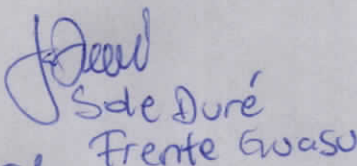 Sole Duré
Frente Guasu